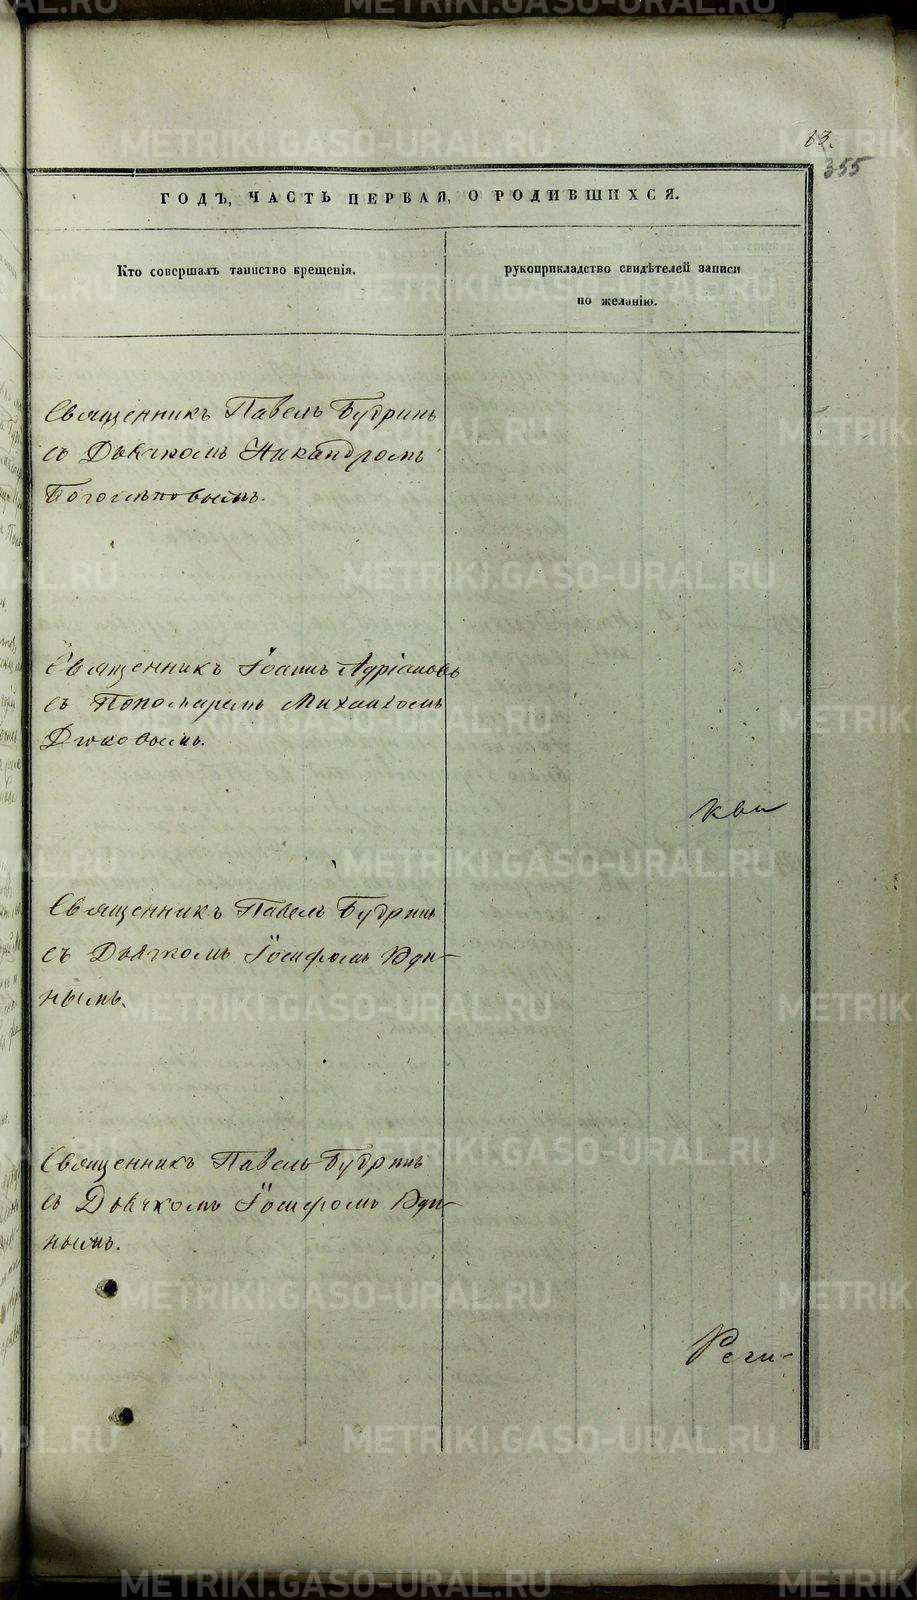 63.
355
ГОДЪ, ЧАСТЬ ПЕРВАЯ, О РОДИВШИХСЯ.
Кто совершалъ таинство крещенія.
рукоприкладство свидѣтелей записи
по желанію.
Священникъ Павелъ Будринъ
съ Дьячкомъ Никандромъ
Боголѣповымъ.
Священникъ Іоаннъ Адріановъ
съ Пономаремъ Михаиломъ
Дюковымъ.
кви
Священникъ Павелъ Будринъ
съ Дьячкомъ Іосифомъ
нымъ.
Священникъ Павелъ Будринъ
съ Дьячкомъ Іосифомъ
нымъ.
Реги-
METRIKI.GASO-URAL.RU